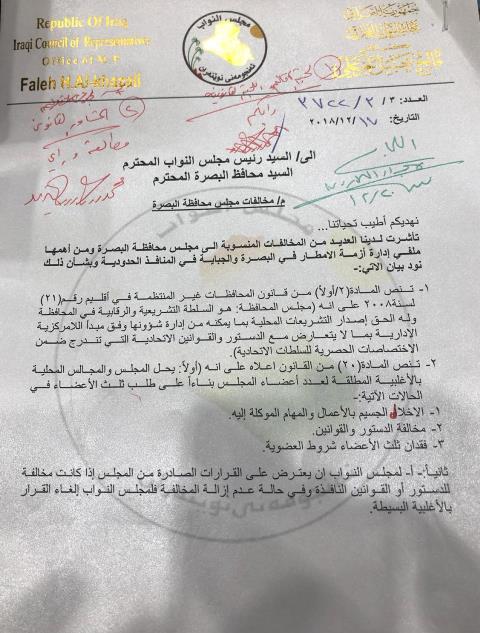 Republic Of Iraq
Iraqi Council of Representatives
Office of M.P
Faleh H.Al-Khazali
مجلس النواب
العدد: ٣/
٣٧٢٢/٢/
التاريخ: ٢٠١٨/١٢/١٧
الى/ السيد رئيس مجلس النواب المحترم
السيد محافظ البصرة المحترم
م/ مخالفات مجلس محافظة البصرة
نهديكم أطيب تحياتنا...
تأشرت لدينا العديد من المخالفات المنسوبة الى مجلس محافظة البصرة ومن أهمها
ملفي إدارة أزمة الامطار في البصرة والجباية في المنافذ الحدودية وبشأن ذلك
نود بيان الاتي:-
١- تنص المادة(٢/أولاً) من قانون المحافظات غير المنتظمة في أقليم رقم(٢١)
لسنة٢٠٠٨ على انه (مجلس المحافظة: هو السلطة التشريعية والرقابية في المحافظة
وله الحق إصدار التشريعات المحلية بما يمكنه من إدارة شؤونها وفق مبدأ اللامركزية
الادارية بما لا يتعارض مع الدستور والقوانين الاتحادية التي تندرج ضمن
الاختصاصات الحصرية للسلطات الاتحادية).
٢- تنص المادة(٢٠) من القانون اعلاه على انه (أولاً: يحل المجلس والمجالس المحلية
بالأغلبية المطلقة لعدد أعضاء المجلس بناءاً على طلب ثلث الأعضاء في
الحالات الآتية:-
١- الاخلال الجسيم بالأعمال والمهام الموكلة إليه.
٢- مخالفة الدستور والقوانين.
٣- فقدان ثلث الأعضاء شروط العضوية.
ثانياً:- أ- لمجلس النواب إن يعترض على القرارات الصادرة من المجلس إذا كانت مخالفة
للدستور أو القوانين النافذة وفي حالة عدم إزالة المخالفة فلمجلس النواب إلغاء القرار
بالأغلبية البسيطة.